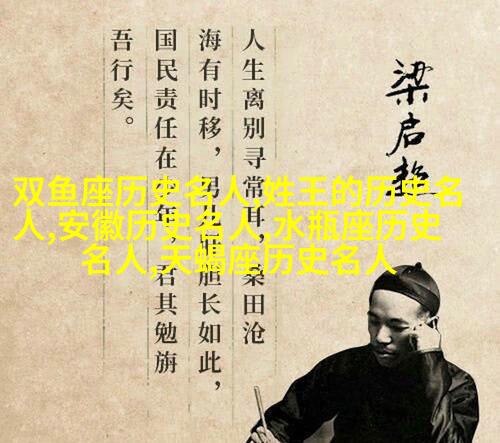 双鱼座历史名人,姓王的历史名
人,安徽历史名人,水瓶座历史
名人,天蝎座历史名人
梁启超
人生离别寻常耳，桑田沧
海有时移，男儿肝胆长如此，
国民责任在少年，君其勉旃
吾行矣。